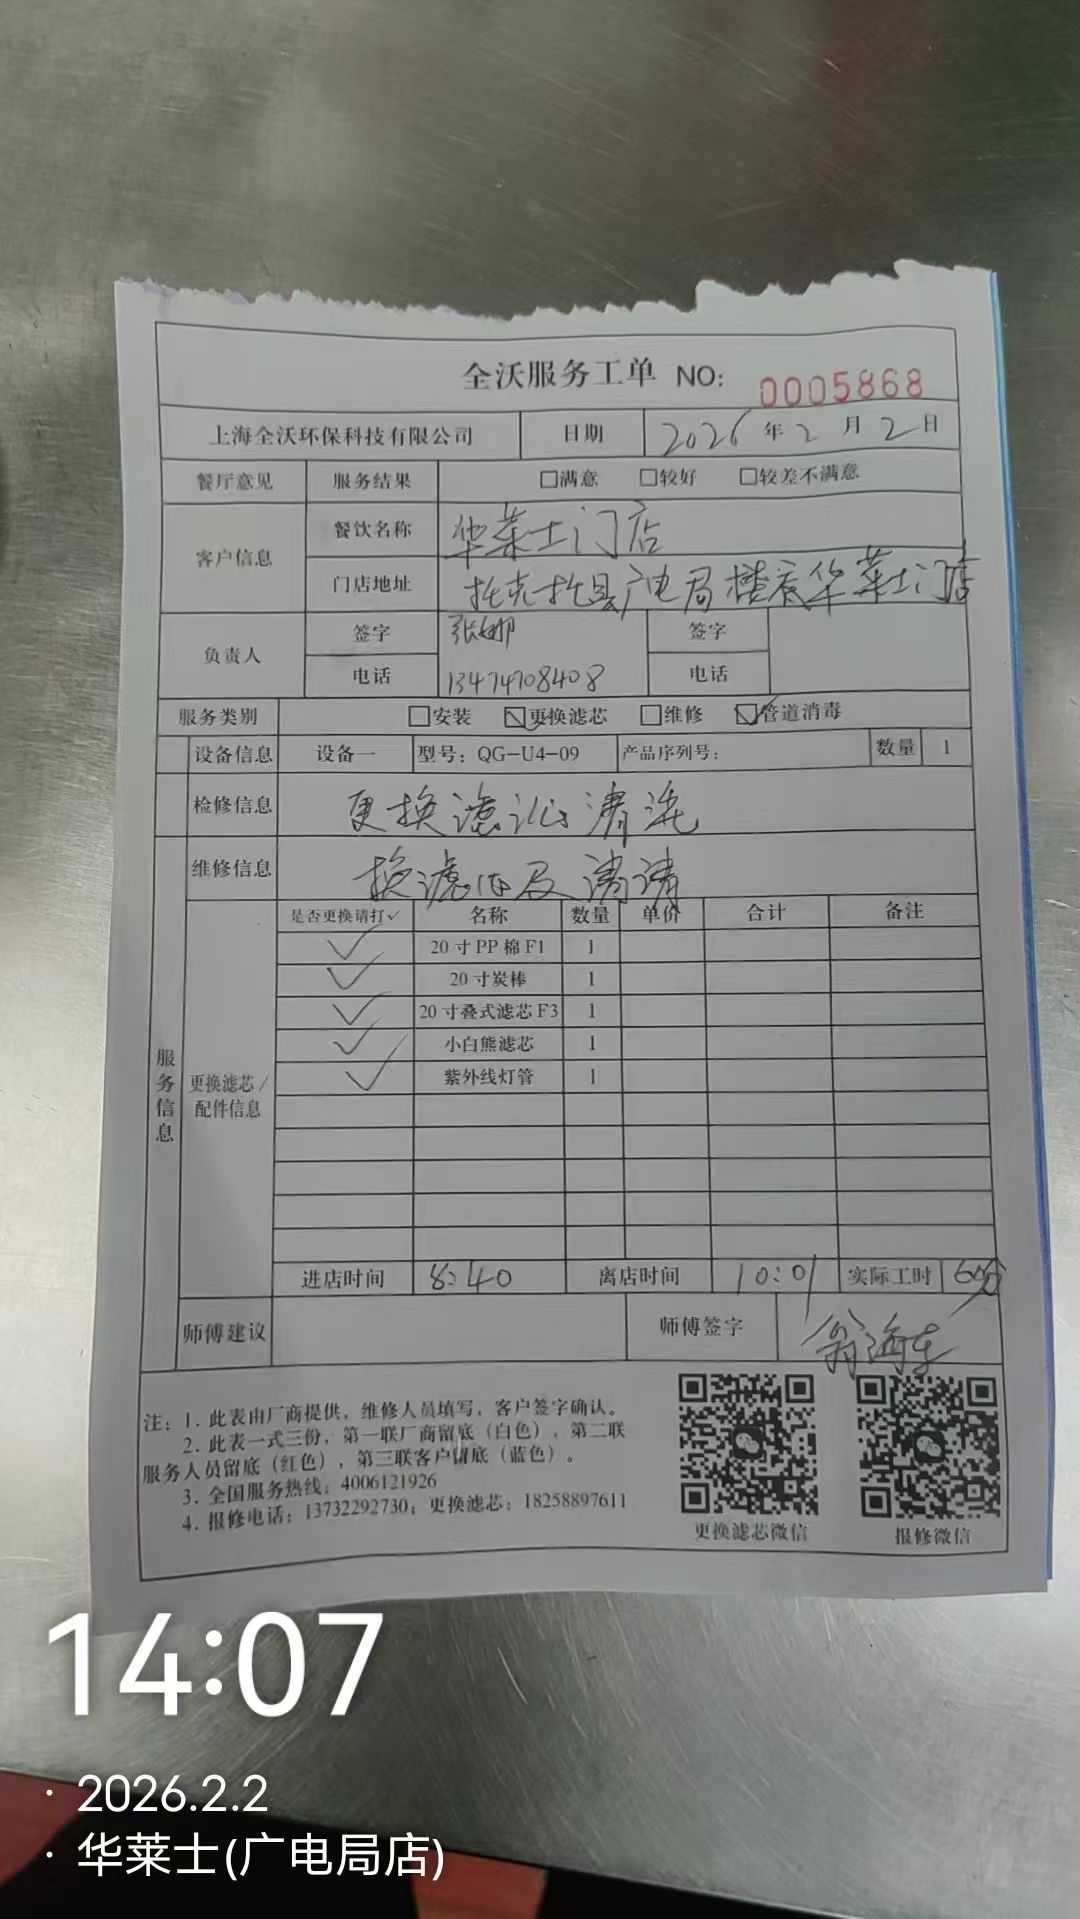 全沃服务工单 NO: 0005868
上海全沃环保科技有限公司 日期 2026年2月2日
餐厅意见 服务结果 □满意 □较好 □较差不满意
客户信息 餐饮名称 华莱士门店
门店地址 托克托县广电局楼底华莱士门店
负责人 签字 张娜 签字
电话 13474708408 电话
服务类别 □安装 ☑更换滤芯 □维修 ☑管道消毒
设备信息 设备一 型号：QG-U4-09 产品序列号： 数量 1
检修信息 更换滤芯清洗
维修信息 换滤芯及清请
服务信息
更换滤芯/配件信息
是否更换请打✓ 名称 数量 单价 合计 备注
✓ 20寸PP棉F1 1
✓ 20寸炭棒 1
✓ 20寸叠式滤芯F3 1
✓ 小白熊滤芯 1
✓ 紫外线灯管 1
进店时间 8:40 离店时间 10:01 实际工时 60分
师傅建议 师傅签字 翁海东
注：1. 此表由厂商提供，维修人员填写，客户签字确认。
2. 此表一式三份，第一联厂商留底（白色），第二联
服务人员留底（红色），第三联客户留底（蓝色）。
3. 全国服务热线：4006121926
4. 报修电话：13732292730；更换滤芯：18258897611
更换滤芯微信 报修微信
14:07
· 2026.2.2
· 华莱士(广电局店)